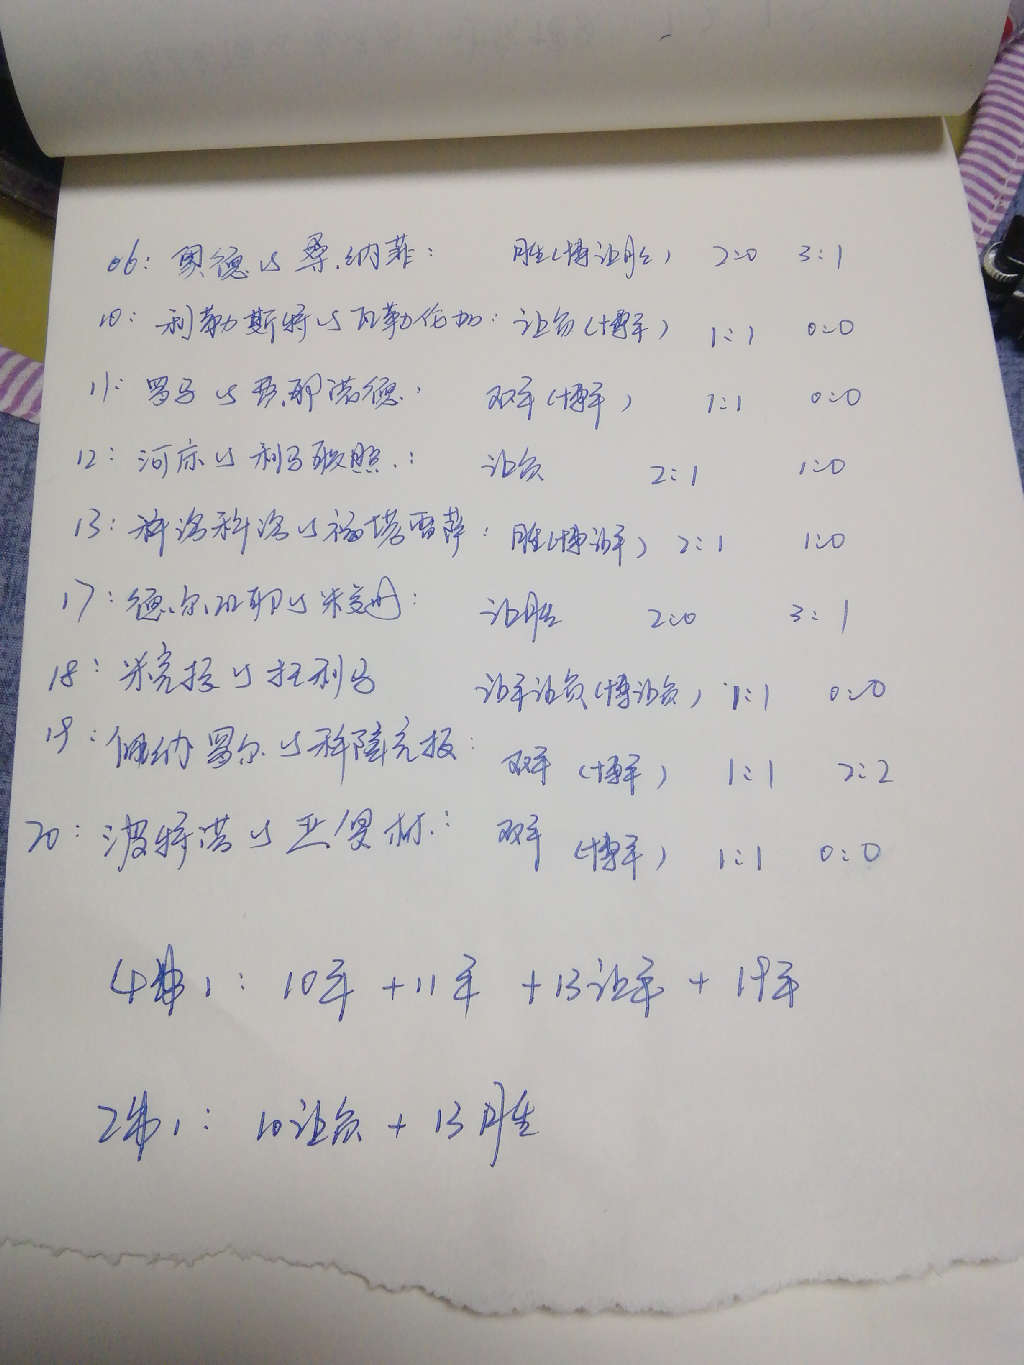 06: 奥德 vs 桑纳菲: 胜(博让胜) 2:0 3:1
10: 利勒斯特 vs 瓦勒伦加: 让负(博平) 1:1 0:0
11: 罗马 vs 费耶诺德: 双平(博平) 1:1 0:0
12: 河床 vs 利马联盟: 让负 2:1 1:0
13: 科洛科洛 vs 福塔雷萨: 胜(博让平) 2:1 1:0
17: 德尔瓦耶 vs 米竞技: 让胜 2:0 3:1
18: 米竞技 vs 托利马 让平让负(博让负) 1:1 0:0
19: 佩纳罗尔 vs 科隆竞技: 双平 (博平) 1:1 2:2
20: 波特诺 vs 亚保林: 双平 (博平) 1:1 0:0
4串1: 10平 + 11平 + 13让平 + 19平
2串1: 10让负 + 13胜